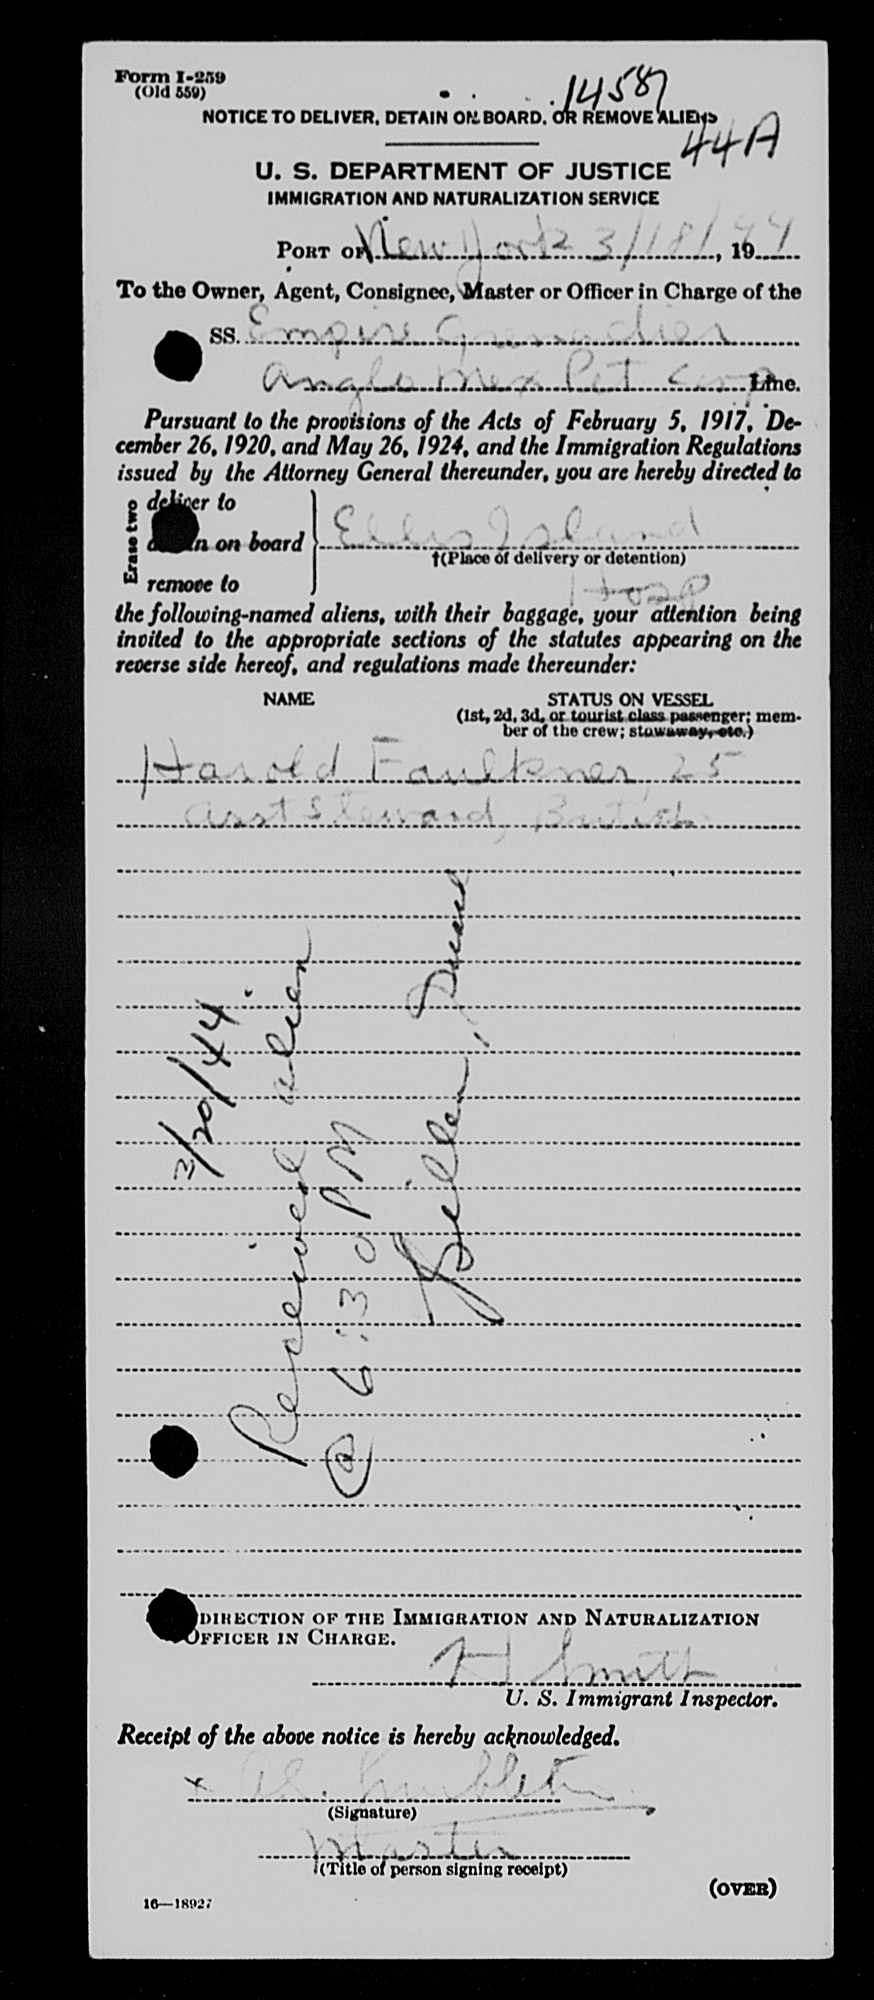 Form I-259
(Old 559)
14587
NOTICE TO DELIVER, DETAIN ON BOARD, OR REMOVE ALIENS
44A
U. S. DEPARTMENT OF JUSTICE
IMMIGRATION AND NATURALIZATION SERVICE
PORT OF New York 3/18/44, 19
To the Owner, Agent, Consignee, Master or Officer in Charge of the
SS. Empire Grenadier
Anglo Mex Pet Corp Line.
Pursuant to the provisions of the Acts of February 5, 1917, De-
cember 26, 1920, and May 26, 1924, and the Immigration Regulations
issued by the Attorney General thereunder, you are hereby directed to
Erase two
deliver to
n on board
Ellis Island
†(Place of delivery or detention)
remove to
Hosp
the following-named aliens, with their baggage, your attention being
invited to the appropriate sections of the statutes appearing on the
reverse side hereof, and regulations made thereunder:
NAME STATUS ON VESSEL
(1st, 2d, 3d, or tourist class passenger; mem-
ber of the crew; stowaway, etc.)
Harold Faulkner, 25
Asst Steward, British
3/20/44.
Received alien
@ 6:30 PM
DIRECTION OF THE IMMIGRATION AND NATURALIZATION
OFFICER IN CHARGE.
H Smith
U. S. Immigrant Inspector.
Receipt of the above notice is hereby acknowledged.
x
(Signature)
Master
(Title of person signing receipt)
(OVER)
16—18927